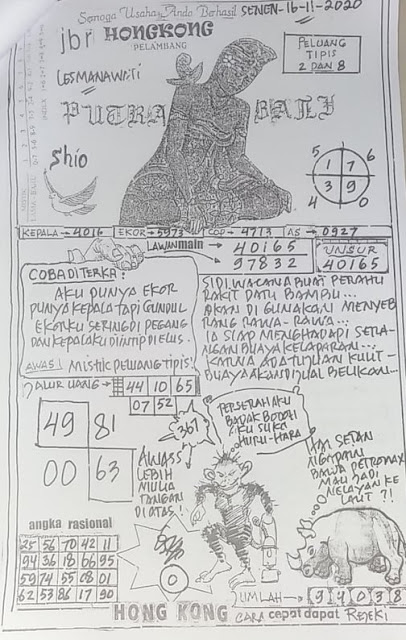 Semoga Usaha Anda Berhasil
SENEN-16-11-2020
jbr HONGKONG
PELAMBANG
PELUANG
TIPIS
2 DAN 8
LESMANAWATI
PUTRA BALI
Shio
5 6
1 7
3 9
4 0
KEPALA → 4016 EKOR → 5973 COP → 4713 AS → 0927
LAWAN main → 40165
97832
UNSUR
40165
COBA DI TERKA :
AKU PUNYA EKOR
PUNYA KEPALA TAPI GUNDUL
EKORKU SERING DI PEGANG
DAN KEPALAKU DI INTIP DI ELUS.
SIDI WACANA BUAT PERAHU
RAKIT DARI BAMBU...
AKAN DI GUNAKAN MENYEB
RANG RAWA-RAWA...
IA SIAP MENGHADAPI SERA-
NGAN BUAYA KELAPARAN...
KARNA ADA TUJUAN KULIT-
BUAYA AKAN DIJUAL BELIKAN...
AWAS! MISTIK PELUANG TIPIS!
JALUR UANG → 44 10 65
07 52
49 81
00 63
361
PERSETAN AKU
BADAK BODOH
AKU SUKA
HURU-HARA
AWASS
LEBIH
MULIA
TANGAN
DI ATAS!
SETAN
BAWA PETROMAX
MAU JADI
NELAYAN KE
LAUT ?!
angka rasional
25 56 70 42 11
94 36 18 66 95
59 74 55 08 01
62 53 86 17 90
0
JUMLAH → 9 4 0 3 8
HONG KONG CARA cepat dapat REJEKI